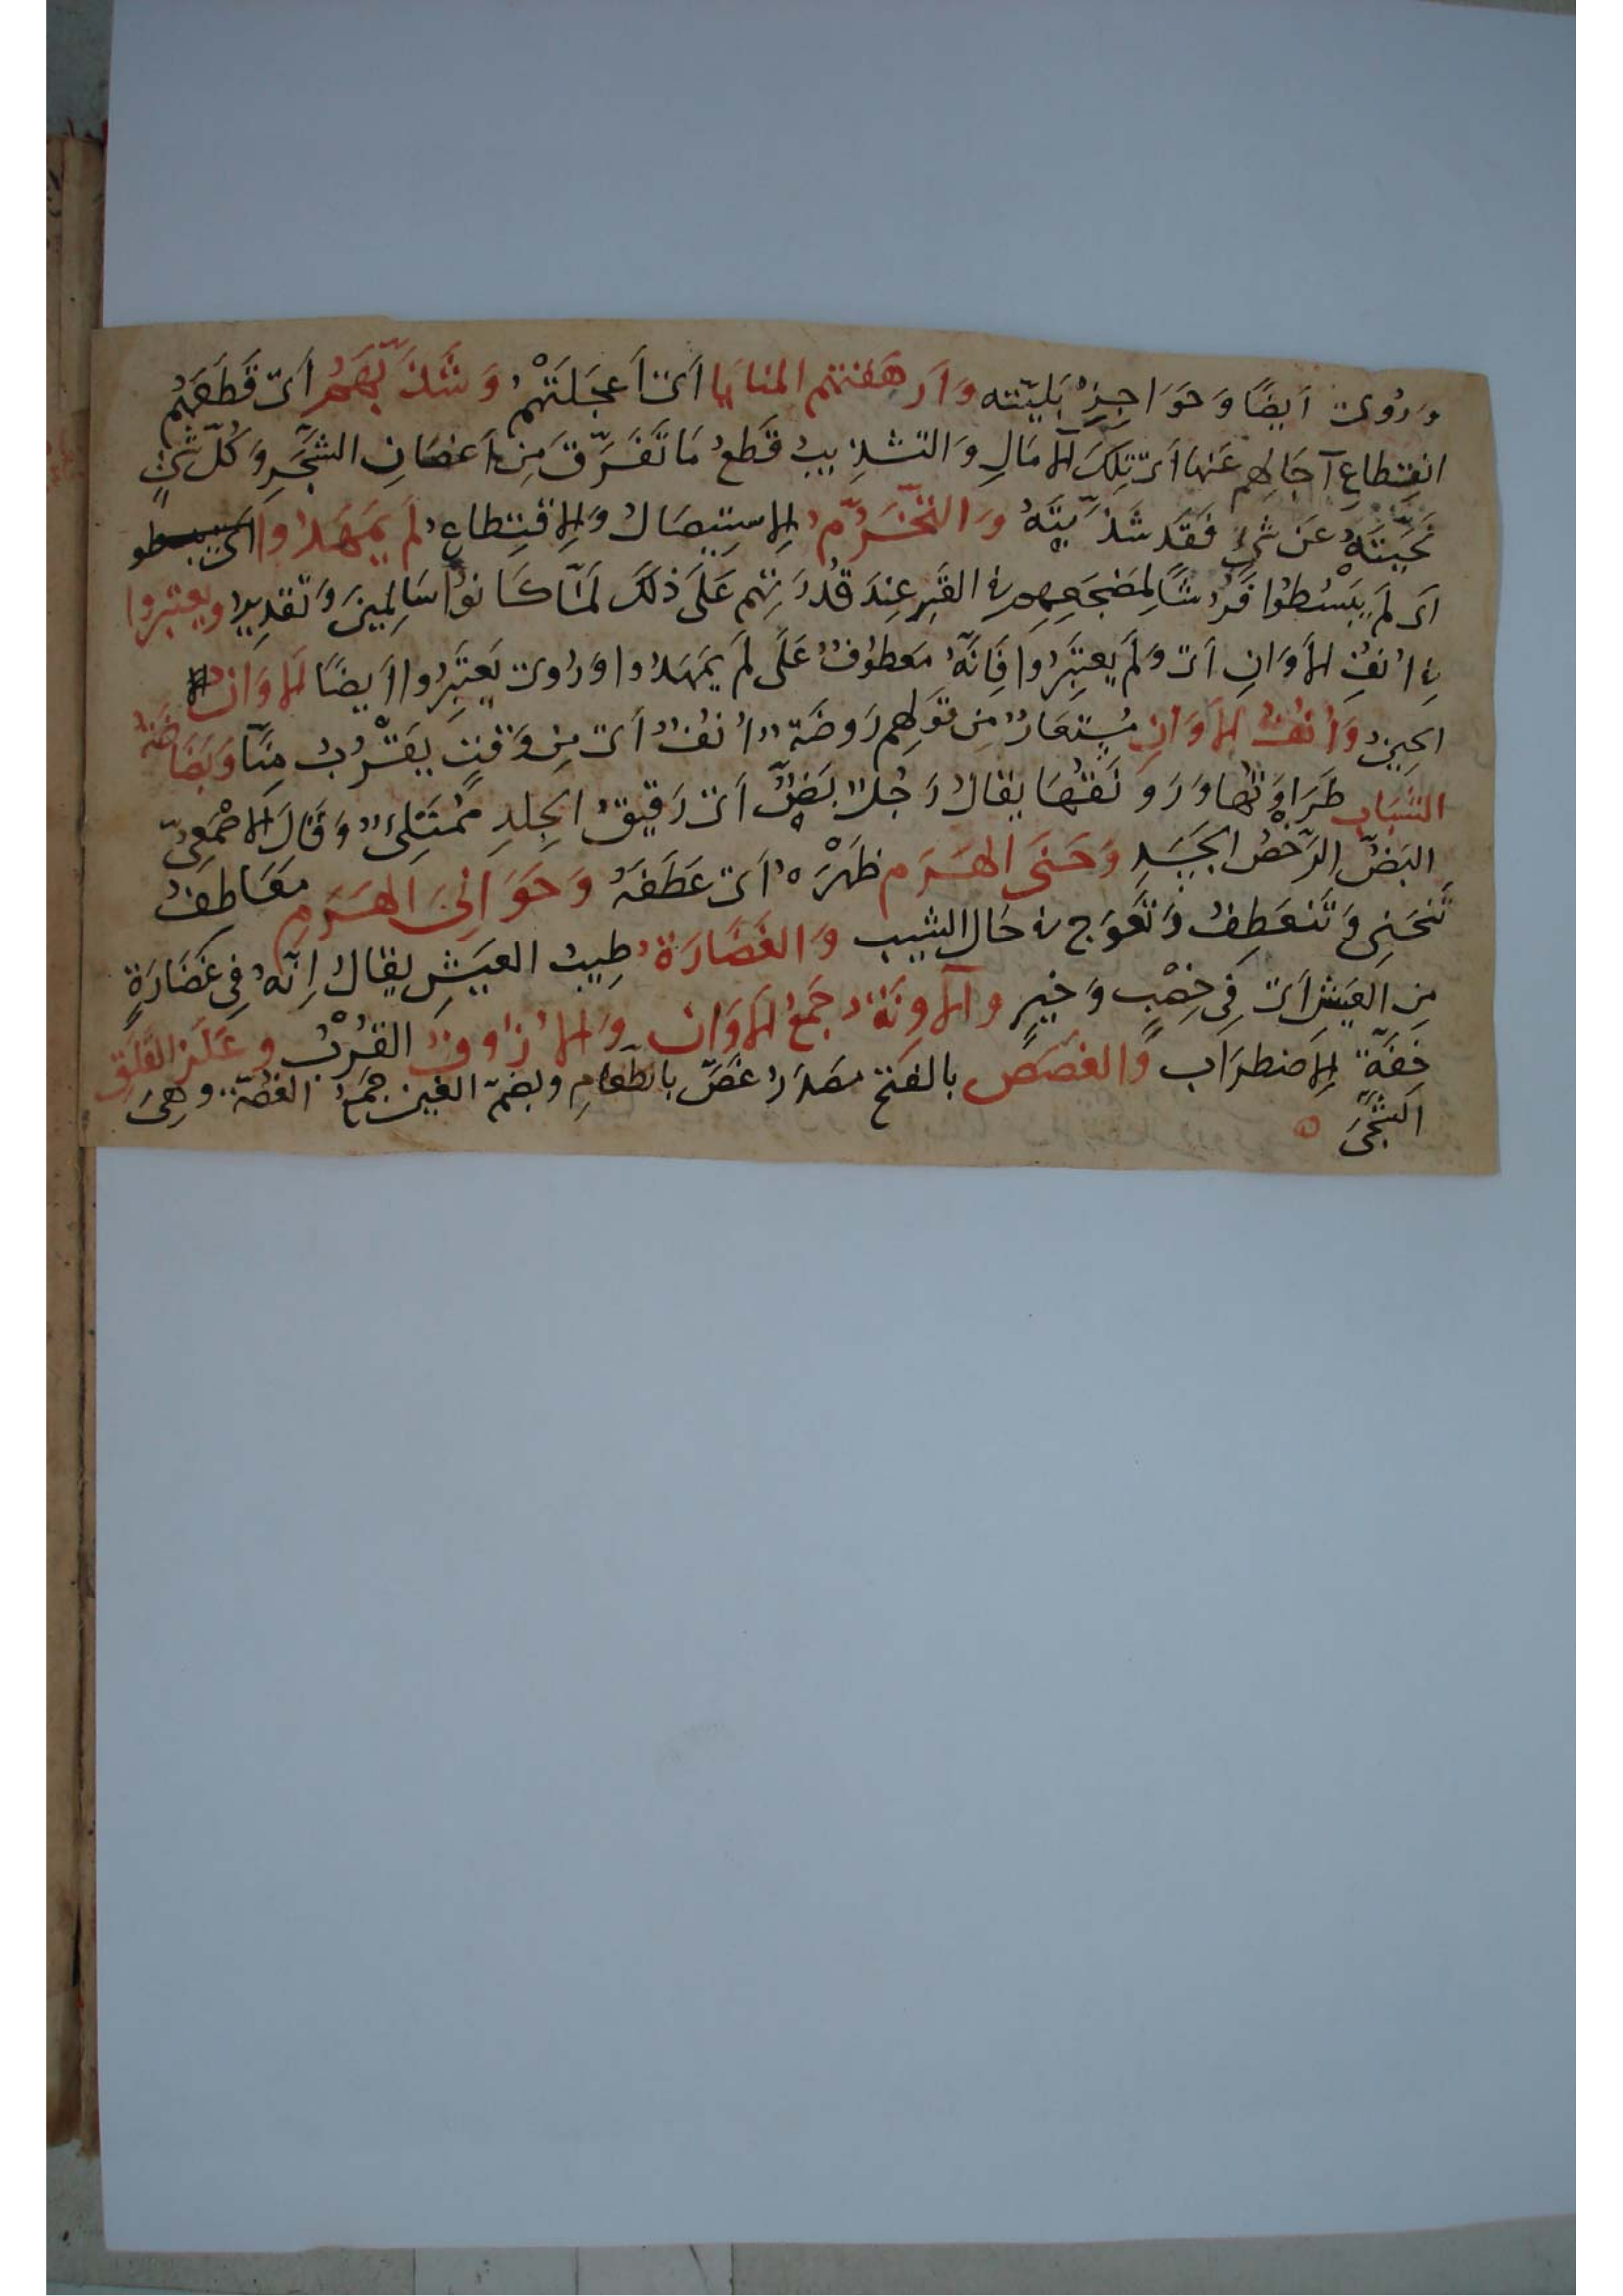 وَرُوِىَ اَيضًا وَحَوَاجِزِ بَليّته وَاَرهَقتهم المنايا اَىْ اَعجَلَتْهُمْ وَشَذَّبَهُمْ اَىْ قَطَعَهُم
انقِطاعِ آجَالِهم عَنها اَىْ تِلكَ الآمَالِ وَالتشذِيبُ قَطعُ مَا تَفَرَّقَ مِن اَغصَانِ الشَّجَرِ وَكُلّ شَىْءٍ
نَحَّيتَهُ عَن شىءٍ فَقَد شَذَّبتَهُ وَالتَّخَرُّمُ الاِستِيصَالُ وَالاِقتِطاعِ لَم يَمهَدُوا اَىْ يبسطو
اَى لَم يَبسُطُوا فَرشًا لِمَضجَعِهِم فى القَبرِ عِندَ قُدرَتِهم عَلَى ذلكَ لَمَّا كَانوُا سَالِمينَ وَتَقدِيرُ ويعتبروا
فى اُنُفِ الاَوَانِ اَىْ وَلَم يَعتَبِرُوا فَاِنَّهُ مَعطوُفٌ عَلَى لَم يَمهَدُوا وَرُوِىَ يَعتَبِرُوا اَيضًا الاَوَان
الحِينُ وَاُنُفُ الاَوَانِ مُستعَارٌ مِن قَولِهم رَوضَةٌ اُنُفٌ اَىْ مِن وَقتٍ يَقْرُبُ مِنّا وَبَضَاضَةُ
الشَبَاب طَرَاوَتُهَا وَرَونَقُهَا يقالُ رَجُلٌ بَضٌّ اَىْ رَقيقُ الجِلدِ مُمتَلِىءٌ وَقَالَ الاَصْمَعِىّ
البَضّ الرَّخصُ الجَسَدِ وَحَنَى الهَرَم ظَهْرَهُ اَىْ عَطَفَهُ وَحَوَانِىَ الهَرَمِ مَعَاطِفُ
تَنحَنِى وَتَنعَطِفُ وَتَعَوّج فى حَال الشيب وَالغَضَارَةُ طِيبُ العَيشِ يقالُ اِنّهُ فِى غَضَارَةٍ
مِن العَيشِ اَىْ فِى خِصْبٍ وَخَيرٍ وَالآوِنَةُ جَمعُ الاَوَان وَالاُزُوفُ القُرْبُ وعَلَزُ القَلَقِ
خِفّةٌ الاِضطرَاب وَالغصَص بالفتح مَصدَرُ غَصَّ بالطَّعَامِ وبضمّ الغين جَمعُ الغُصّة وهِىَ
الشَّجَى